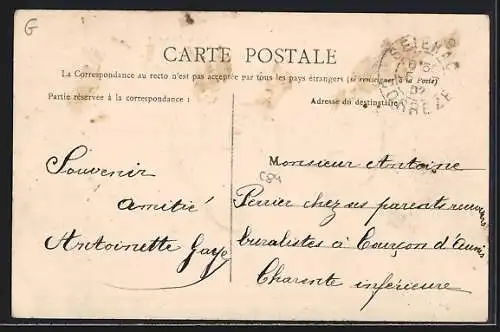 G
CARTE POSTALE
La Correspondance au recto n'est pas acceptée par tous les pays étrangers (se renseigner à la Poste)
Partie réservée à la correspondance :
Adresse du destinataire
CORRÈZE
Souvenir
amitié
Antoinette Gaye
C84
Monsieur Antoine
Perrier chez ses parents receveurs
buralistes à Courçon d'Aunis
Charente inférieure